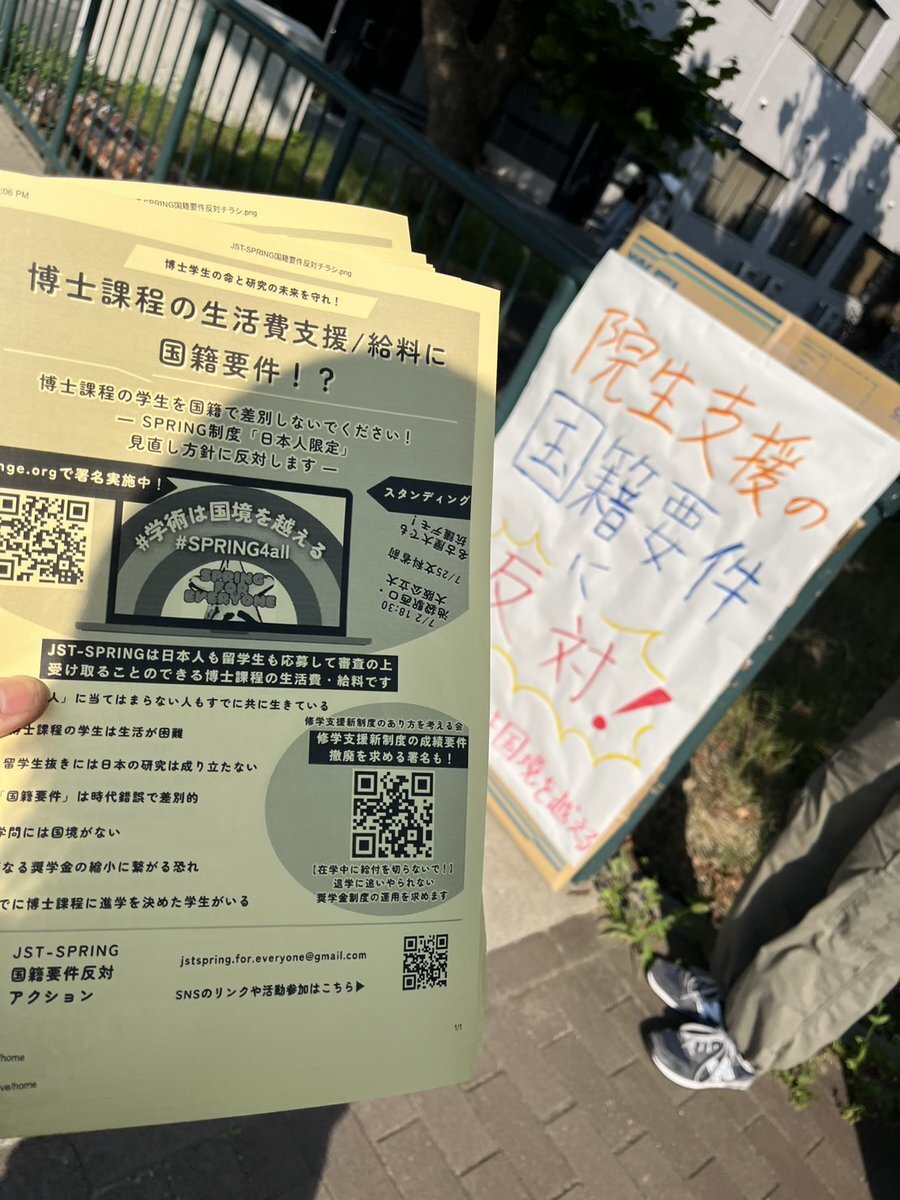 :06 PM
JST-SPRING国籍要件反対チラシ.png
JST-SPRING国籍要件反対チラシ.png
博士学生の命と研究の未来を守れ！
博士課程の生活費支援/給料に
国籍要件！？
博士課程の学生を国籍で差別しないでください！
— SPRING制度「日本人限定」
見直し方針に反対します —
nge.orgで署名実施中！
#学術は国境を越える
#SPRING4all
SPRING
FOR
EVERYONE
スタンディング
7/2 18:30
池袋駅西口・
大阪公立大
7/25文科省前
名古屋大でも
抗議デモ！
JST-SPRINGは日本人も留学生も応募して審査の上
受け取ることのできる博士課程の生活費・給料です
人」に当てはまらない人もすでに共に生きている
博士課程の学生は生活が困難
留学生抜きには日本の研究は成り立たない
「国籍要件」は時代錯誤で差別的
学問には国境がない
なる奨学金の縮小に繋がる恐れ
でに博士課程に進学を決めた学生がいる
修学支援新制度のあり方を考える会
修学支援新制度の成績要件
撤廃を求める署名も！
【在学中に給付を切らないで！】
退学に追いやられない
奨学金制度の運用を求めます
JST-SPRING
国籍要件反対
アクション
jstspring.for.everyone@gmail.com
SNSのリンクや活動参加はこちら▶
1/1
/home
ve/home
院生支援の
国籍要件
に
反対！
#国境を越える